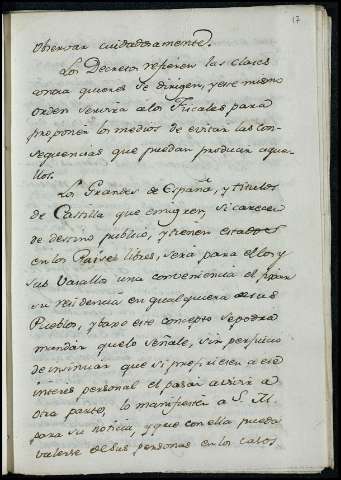 17
observar cuidadosamente.
Los Decretos refieren las clases
contra quienes se dirigen, y ese mismo
orden servirá a los Fiscales para
proponer los medios de evitar las con-
sequencias que puedan producir aque-
llos.
Los Grandes de España, y titulos
de Castilla que emigren, si carecen
de destino publico, y tienen estados
en los Paises libres, será para ellos y
sus Vasallos una conveniencia el fixar
su residencia en qualquiera de sus
Pueblos, y bajo este concepto se podrá
mandar que lo señale, sin perjuicio
de insinuar que si prefirieren a ese
interes personal el pasar a vivir a
otra parte, lo manifiesten a S. M.
para su noticia, y que con ella pueda
valerse de sus personas en los casos